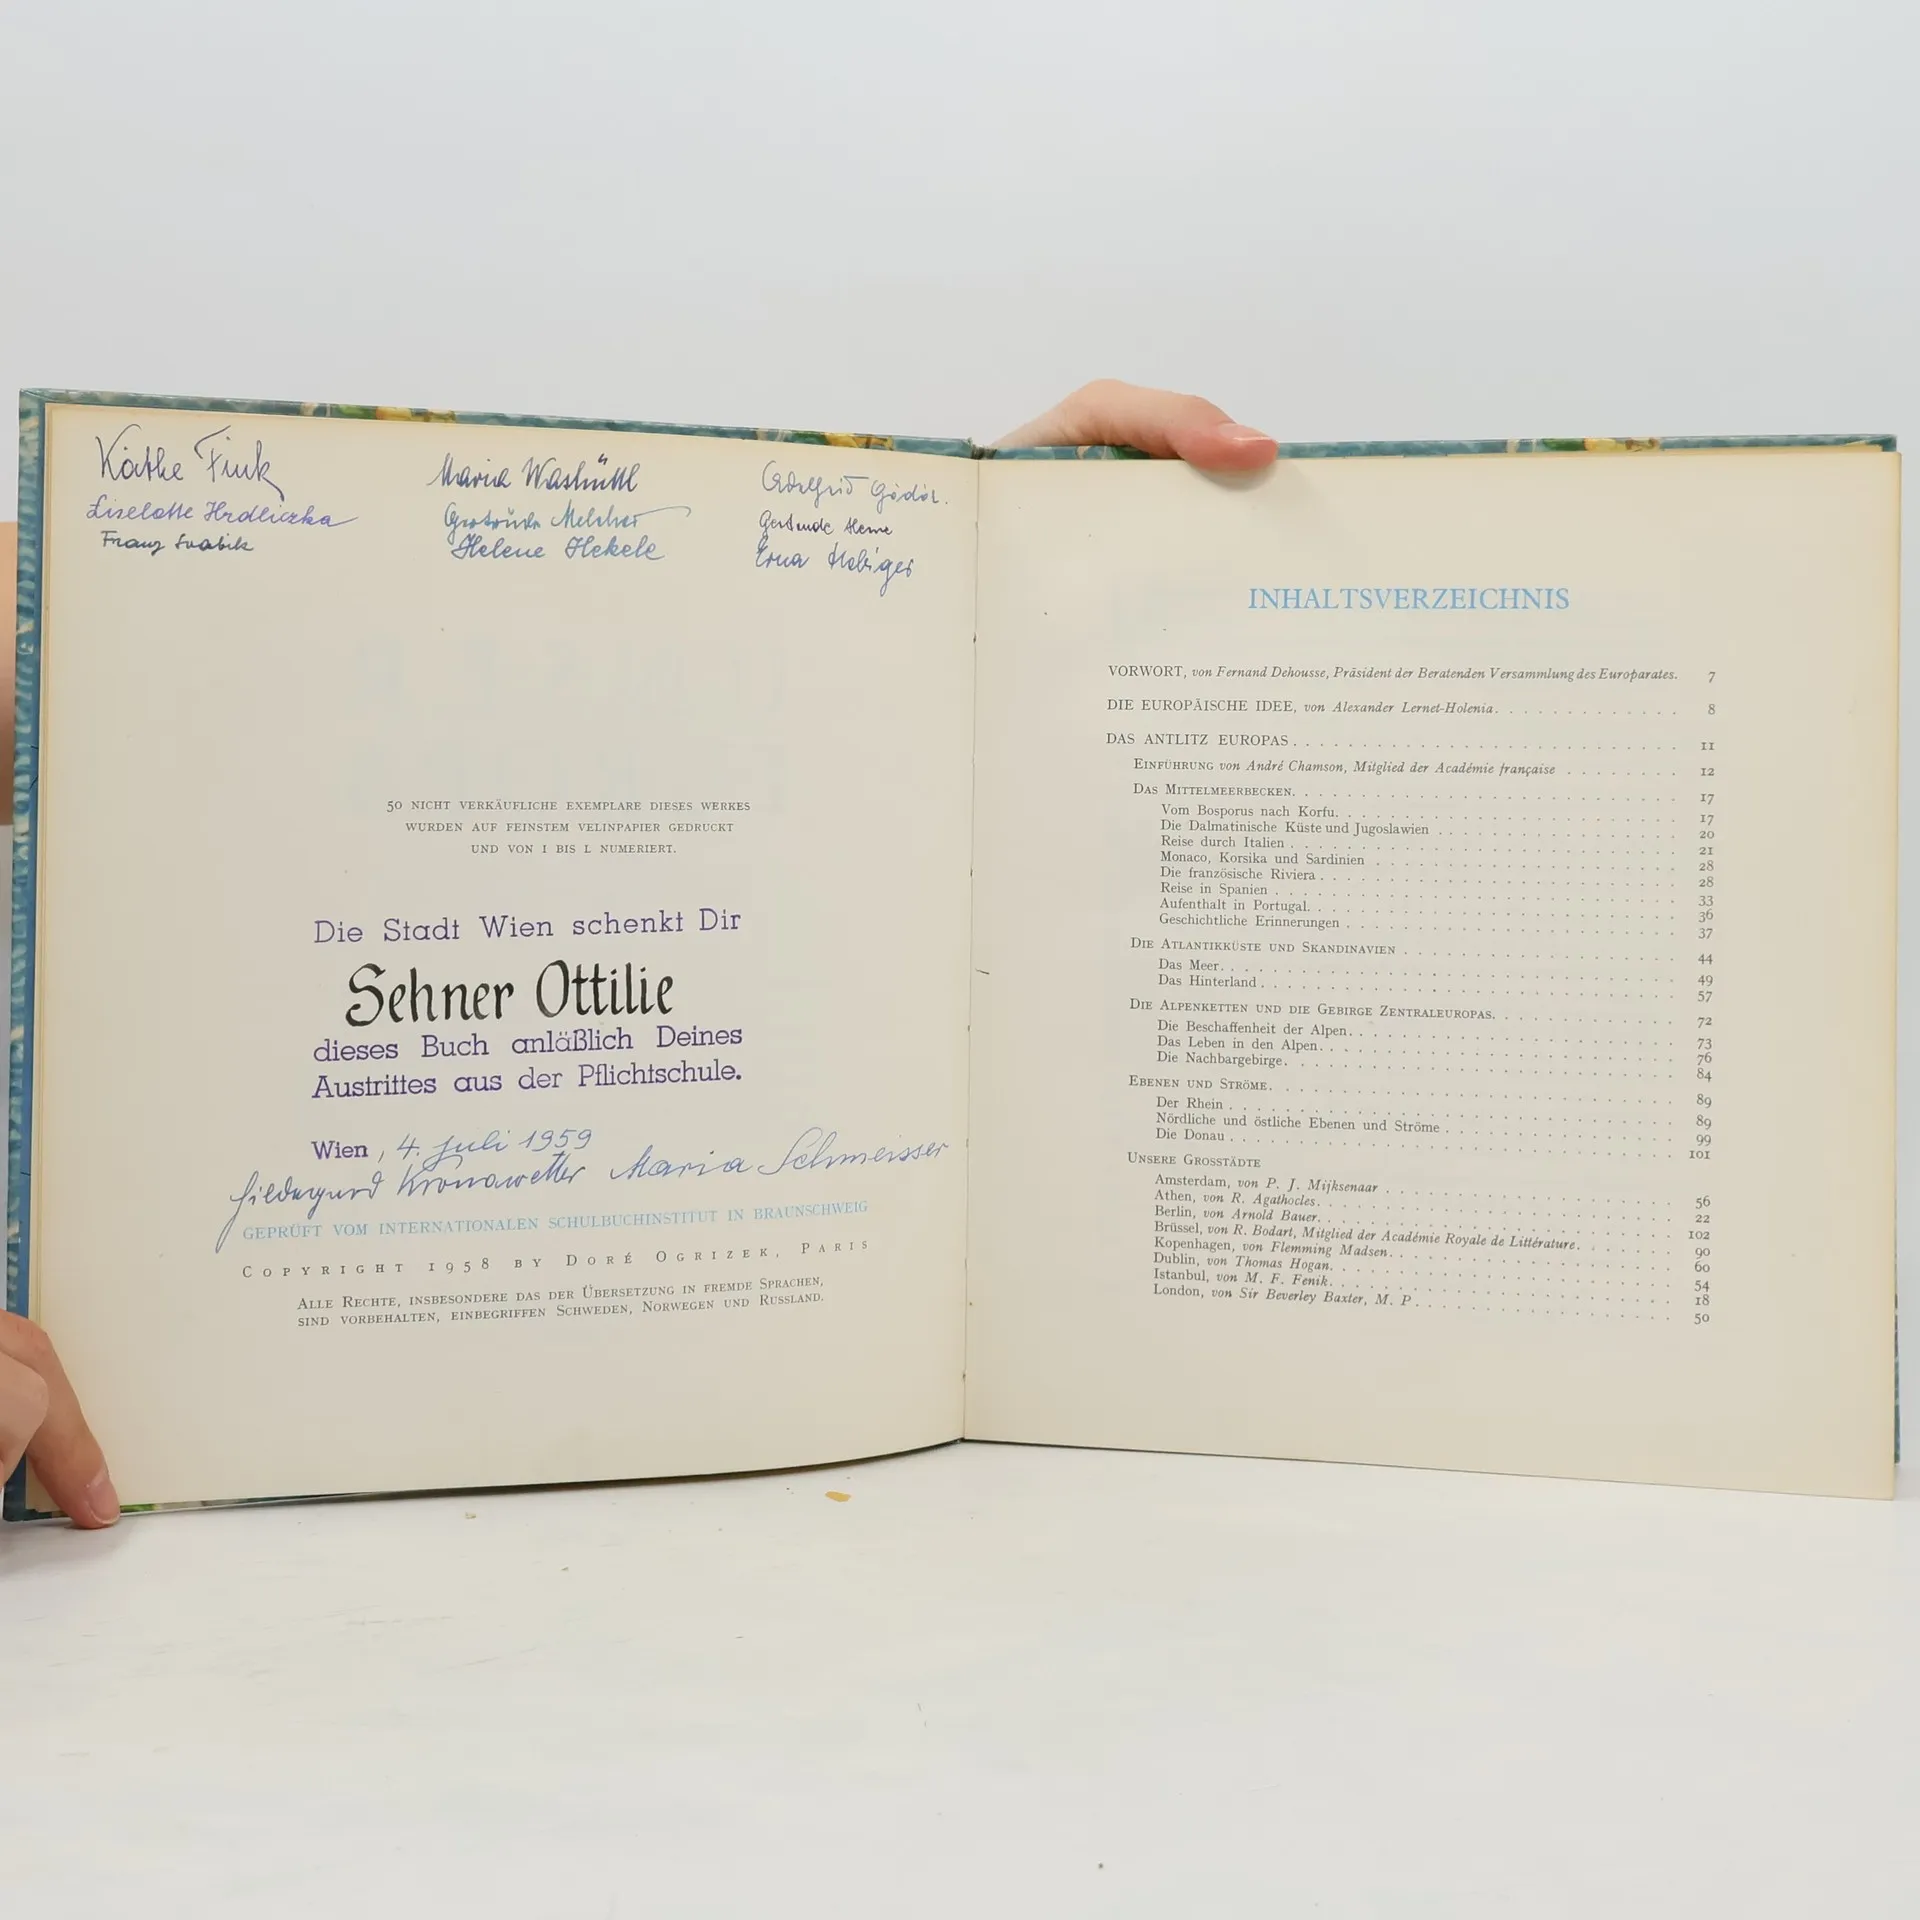 Käthe Fink
Liselotte Hrdliczka
Franz Svabik
Maria Washüttl
Gertrude Melcher
Helene Hekele
Gertrude
Erna
50 NICHT VERKÄUFLICHE EXEMPLARE DIESES WERKES
WURDEN AUF FEINSTEM VELINPAPIER GEDRUCKT
UND VON I BIS L NUMERIERT.
Die Stadt Wien schenkt Dir
Sehner Ottilie
dieses Buch anläßlich Deines
Austrittes aus der Pflichtschule.
Wien, 4. Juli 1959
Hildegund Kronawetter Maria Schmeisser
GEPRÜFT VOM INTERNATIONALEN SCHULBUCHINSTITUT IN BRAUNSCHWEIG
COPYRIGHT 1958 BY DORÉ OGRIZEK, PARIS
ALLE RECHTE, INSBESONDERE DAS DER ÜBERSETZUNG IN FREMDE SPRACHEN,
SIND VORBEHALTEN, EINBEGRIFFEN SCHWEDEN, NORWEGEN UND RUSSLAND.
INHALTSVERZEICHNIS
VORWORT, von Fernand Dehousse, Präsident der Beratenden Versammlung des Europarates. 7
DIE EUROPÄISCHE IDEE, von Alexander Lernet-Holenia. 8
DAS ANTLITZ EUROPAS. 11
EINFÜHRUNG von André Chamson, Mitglied der Académie française 12
DAS MITTELMEERBECKEN. 17
Vom Bosporus nach Korfu. 17
Die Dalmatinische Küste und Jugoslawien 20
Reise durch Italien 21
Monaco, Korsika und Sardinien 28
Die französische Riviera 28
Reise in Spanien 33
Aufenthalt in Portugal. 36
Geschichtliche Erinnerungen 37
DIE ATLANTIKKÜSTE UND SKANDINAVIEN 44
Das Meer. 49
Das Hinterland. 57
DIE ALPENKETTEN UND DIE GEBIRGE ZENTRALEUROPAS. 72
Die Beschaffenheit der Alpen. 73
Das Leben in den Alpen. 76
Die Nachbargebirge. 84
EBENEN UND STRÖME. 89
Der Rhein 89
Nördliche und östliche Ebenen und Ströme 99
Die Donau 101
UNSERE GROSSTÄDTE
Amsterdam, von P. J. Mijksenaar 56
Athen, von R. Agathocles. 22
Berlin, von Arnold Bauer. 102
Brüssel, von R. Bodart, Mitglied der Académie Royale de Littérature. 90
Kopenhagen, von Flemming Madsen. 60
Dublin, von Thomas Hogan. 54
Istanbul, von M. F. Fenik. 18
London, von Sir Beverley Baxter, M. P. 50